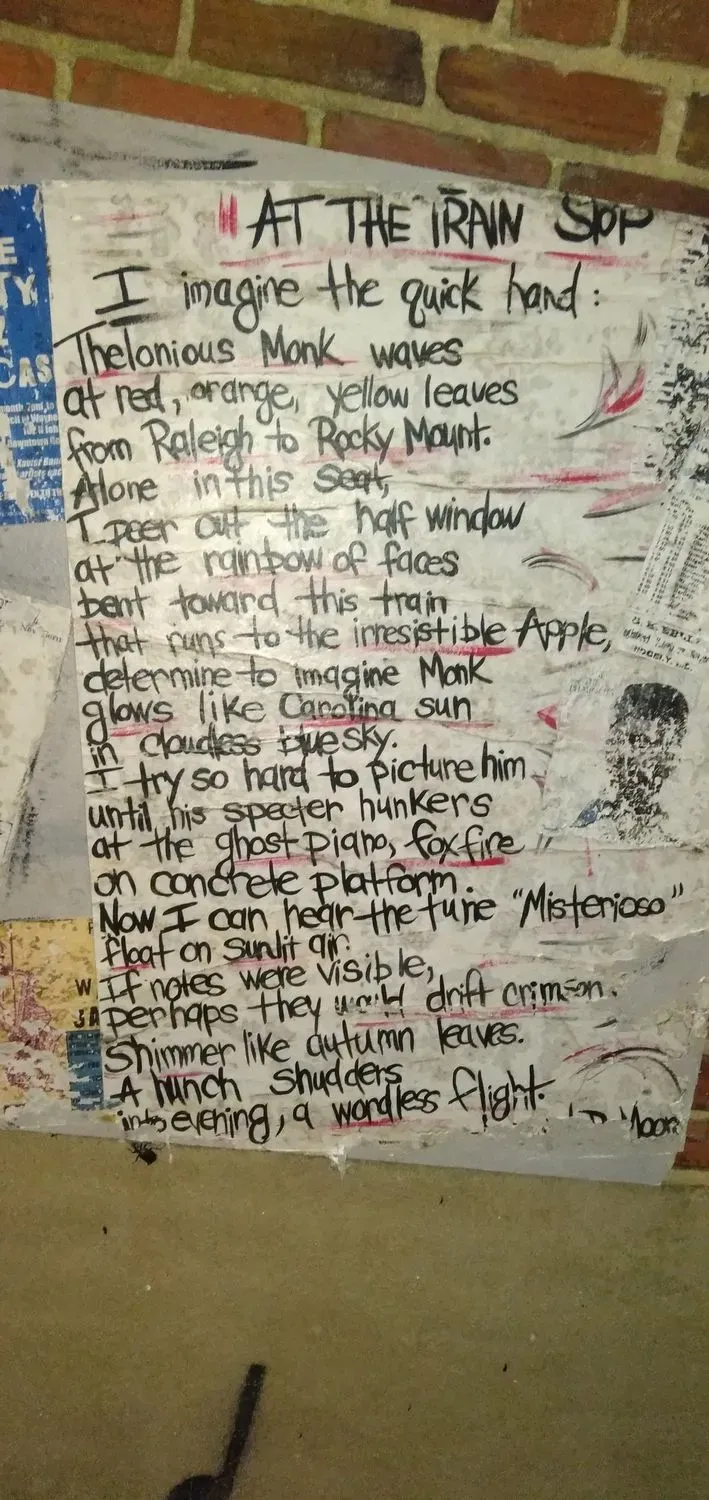 "AT THE TRAIN STOP
I imagine the quick hand:
Thelonious Monk waves
at red, orange, yellow leaves
from Raleigh to Rocky Mount.
Alone in this seat,
I peer out the half window
at the rainbow of faces
bent toward this train
that runs to the irresistible Apple,
determine to imagine Monk
glows like Carolina sun
in cloudless blue sky.
I try so hard to picture him
until his specter hunkers
at the ghost piano, foxfire
on concrete platform.
Now I can hear the tune "Misterioso"
float on sunlit air.
If notes were visible,
perhaps they would drift crimson.
Shimmer like autumn leaves.
A hunch shudders
into evening, a wordless flight.
E
TY
CAS
W